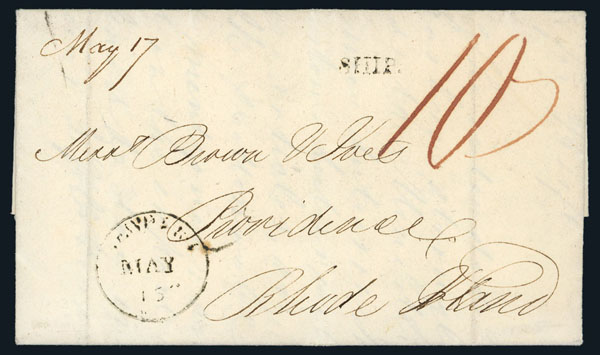 May 17
SHIP.
10
Messrs Brown & Ives
Providence
MAY
15
Rhode Island